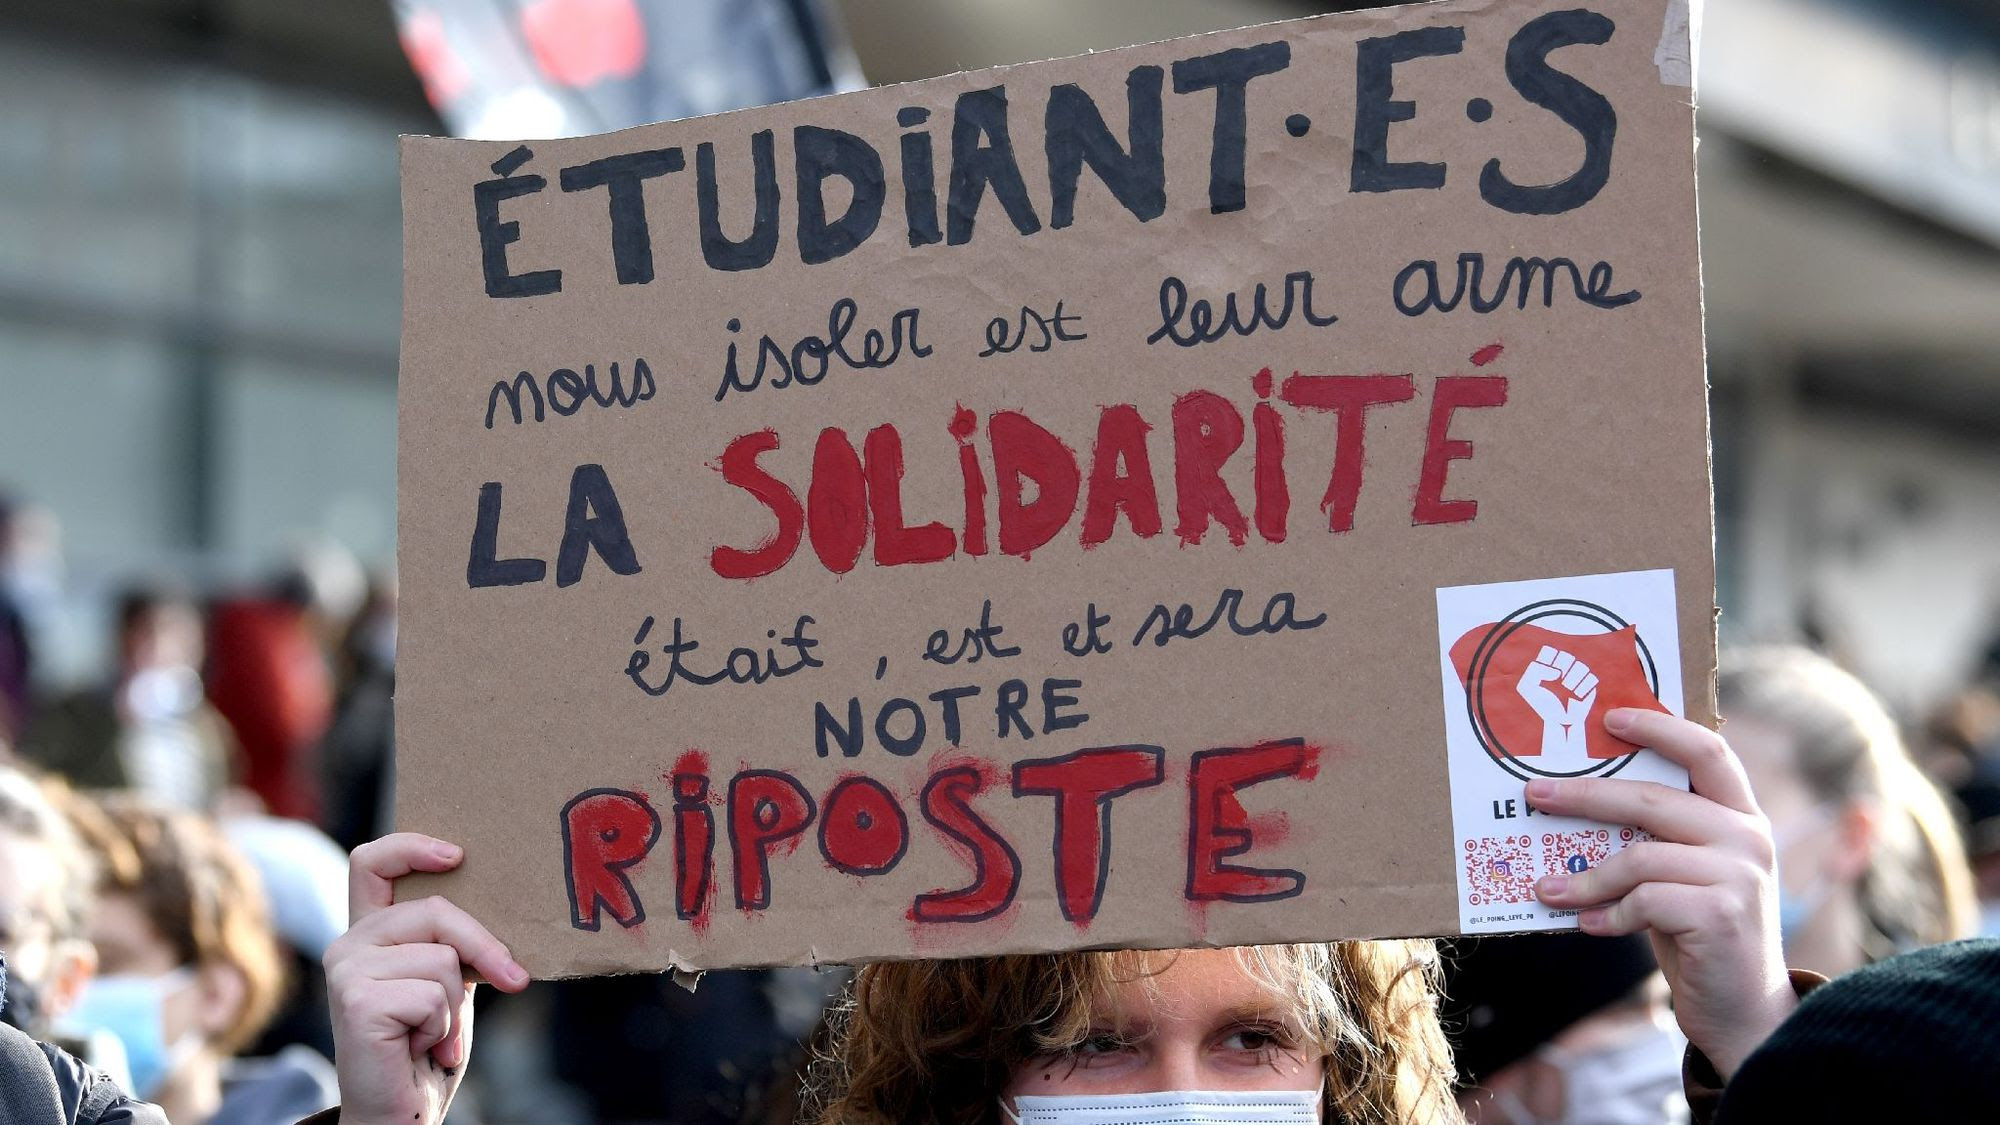 ÉTUDIANT·E·S
nous isoler est leur arme
LA SOLIDARITÉ
était, est et sera
NOTRE
RIPOSTE
LE
@LE_POING_LEVE_P8